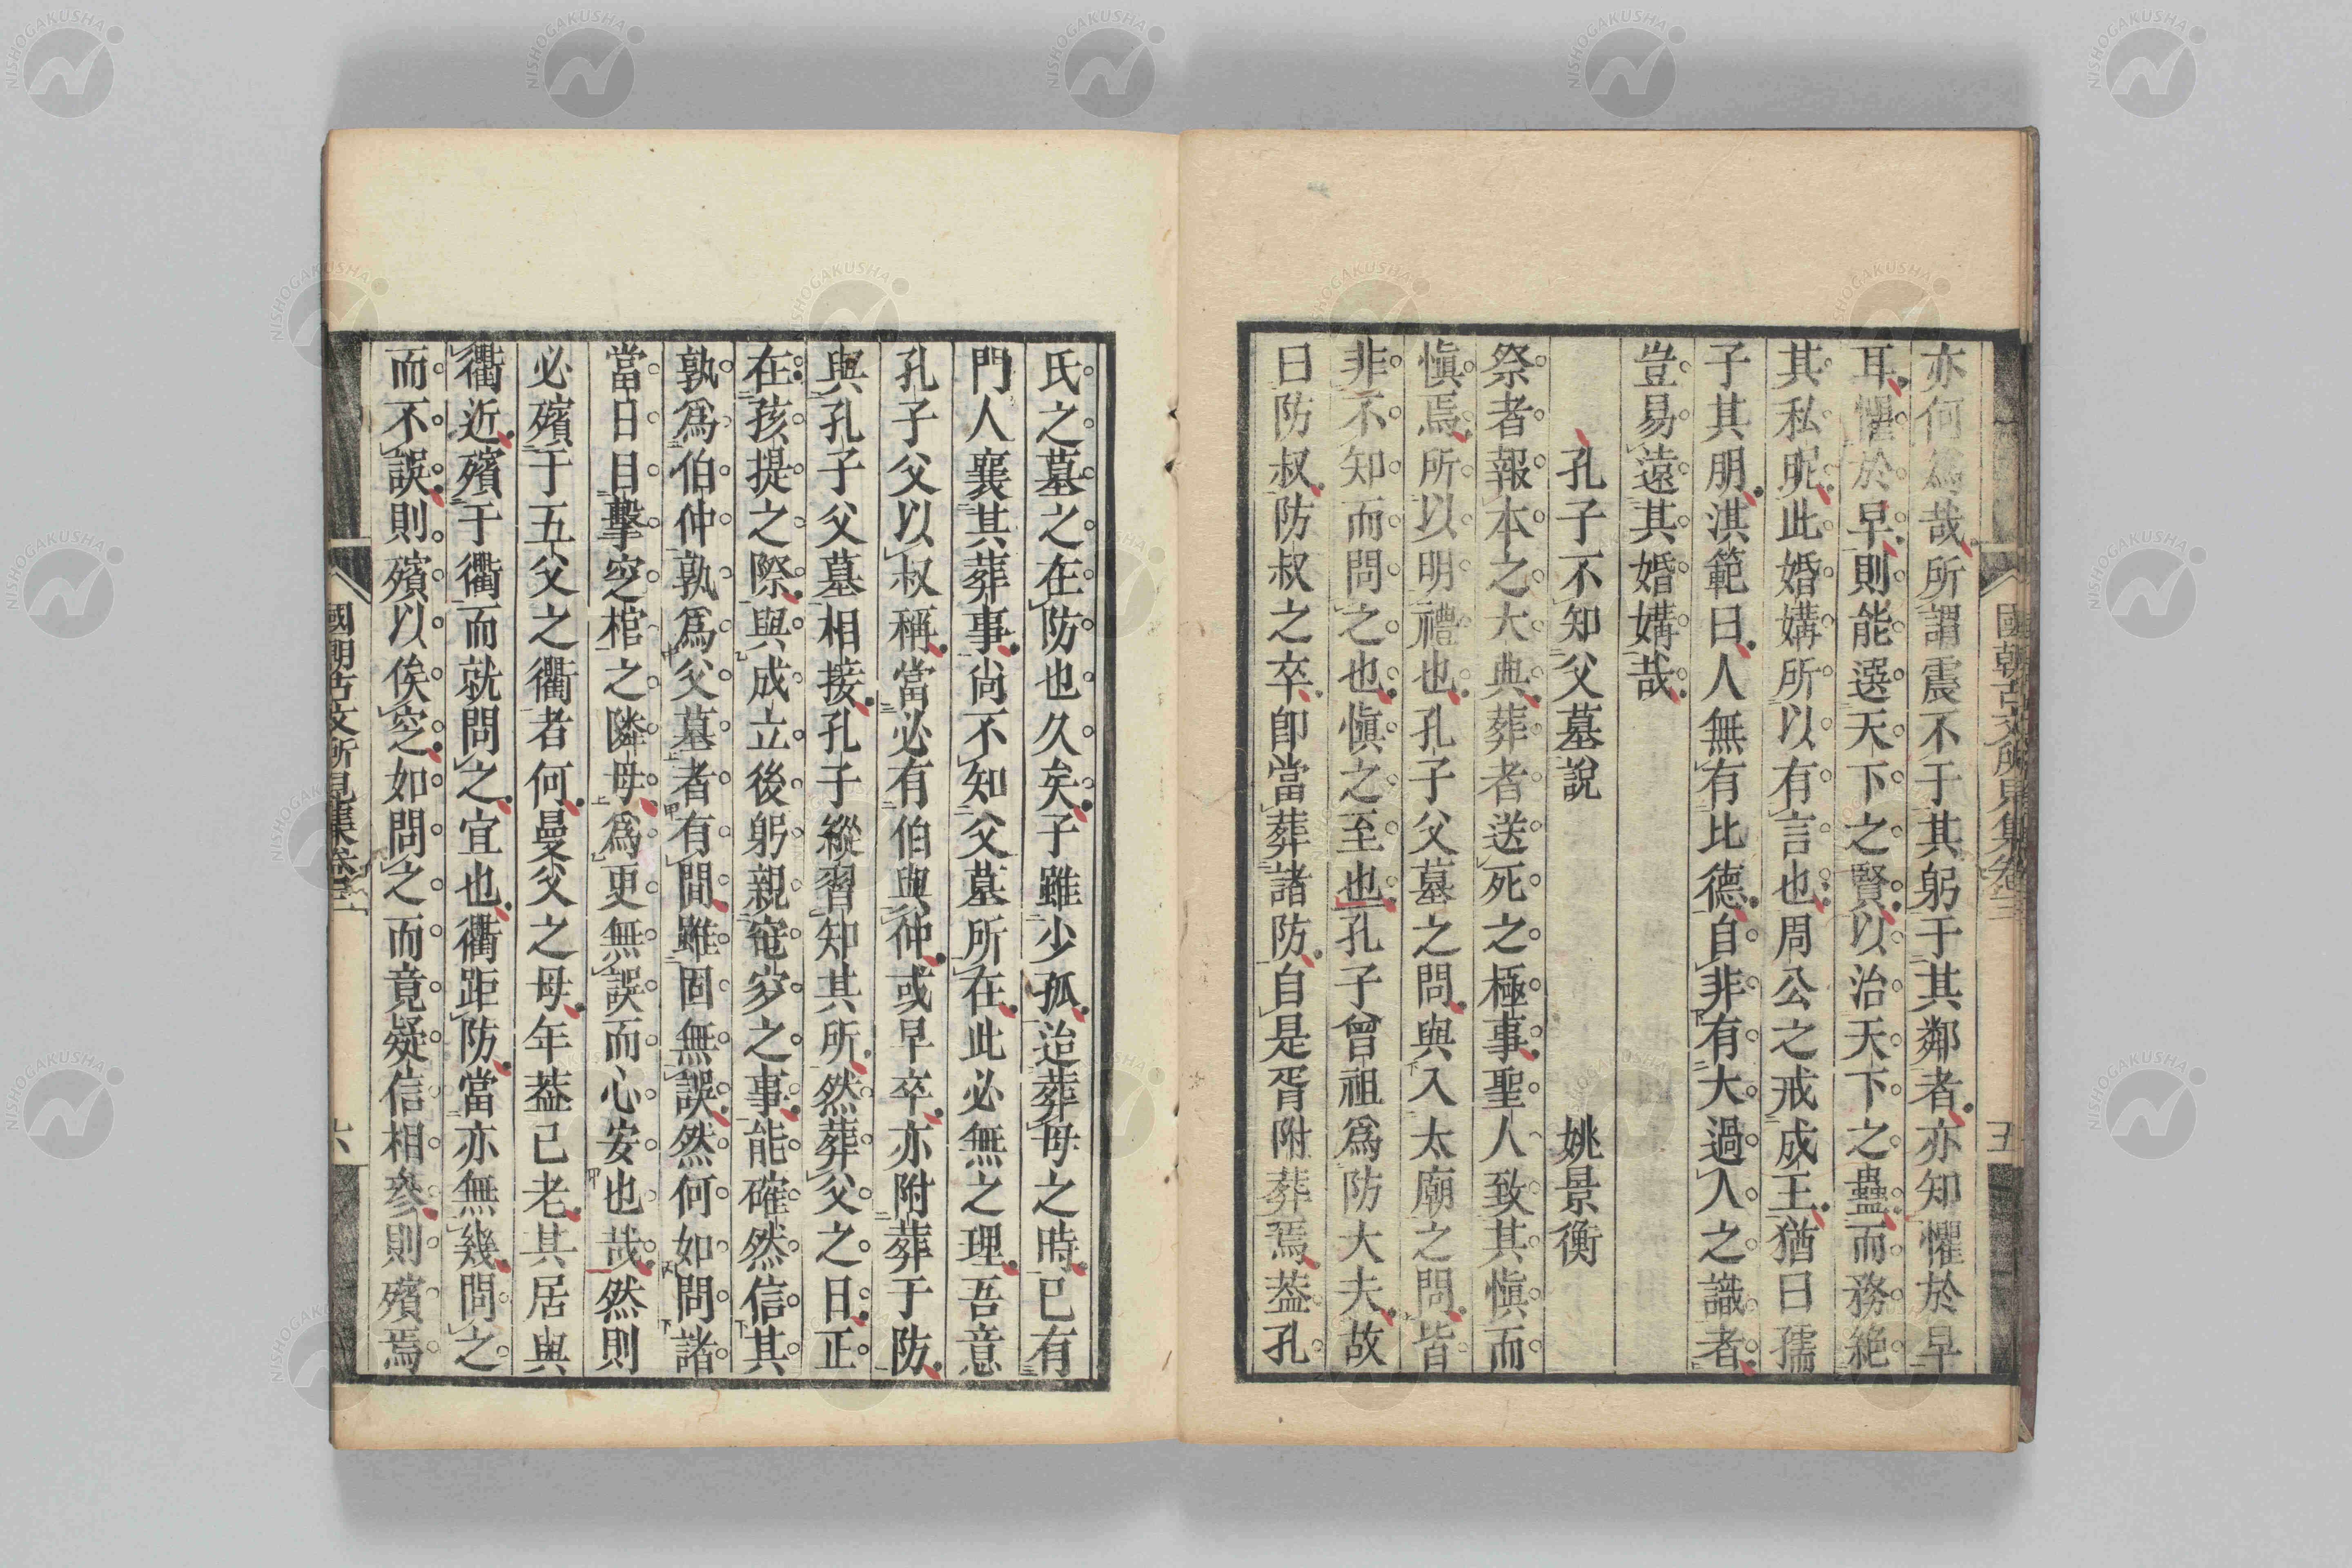 亦何爲哉所謂震不于其躬于其鄰者亦知懼於早
耳懼於早則能選天下之賢以治天下之蠱而務絶
其私昵此婚媾所以有言也周公之戒成王猶曰孺
子其朋淇範曰人無有比德自非有大過人之識者
豈易遠其婚媾哉
孔子不知父墓說 姚景衡
祭者報本之大典葬者送死之極事聖人致其愼而
愼焉所以明禮也孔子父墓之問與入太廟之問皆
非不知而問之也愼之至也孔子曾祖爲防大夫故
曰防叔防叔之卒卽當葬諸防自是胥附葬焉葢孔
國朝古文所見集卷三 五
氏之墓之在防也久矣子雖少孤迨葬母之時已有
門人襄其葬事尚不知父墓所在此必無之理吾意
孔子父以叔稱當必有伯與仲或早卒亦附葬于防
與孔子父墓相接孔子縱習知其所然葬父之日正
在孩提之際與成立後躬親窀穸之事能確然信其
孰爲伯仲孰爲父墓者有間雖固無誤然何如問諸
當日目擊窆棺之隣母爲更無誤而心安也哉然則
必殯于五父之衢者何曼父之母年葢已老其居與
衢近殯于衢而就問之宜也衢距防當亦無幾問之
而不誤則殯以俟窆如問之而竟疑信相參則殯焉
國朝古文所見集卷三 六